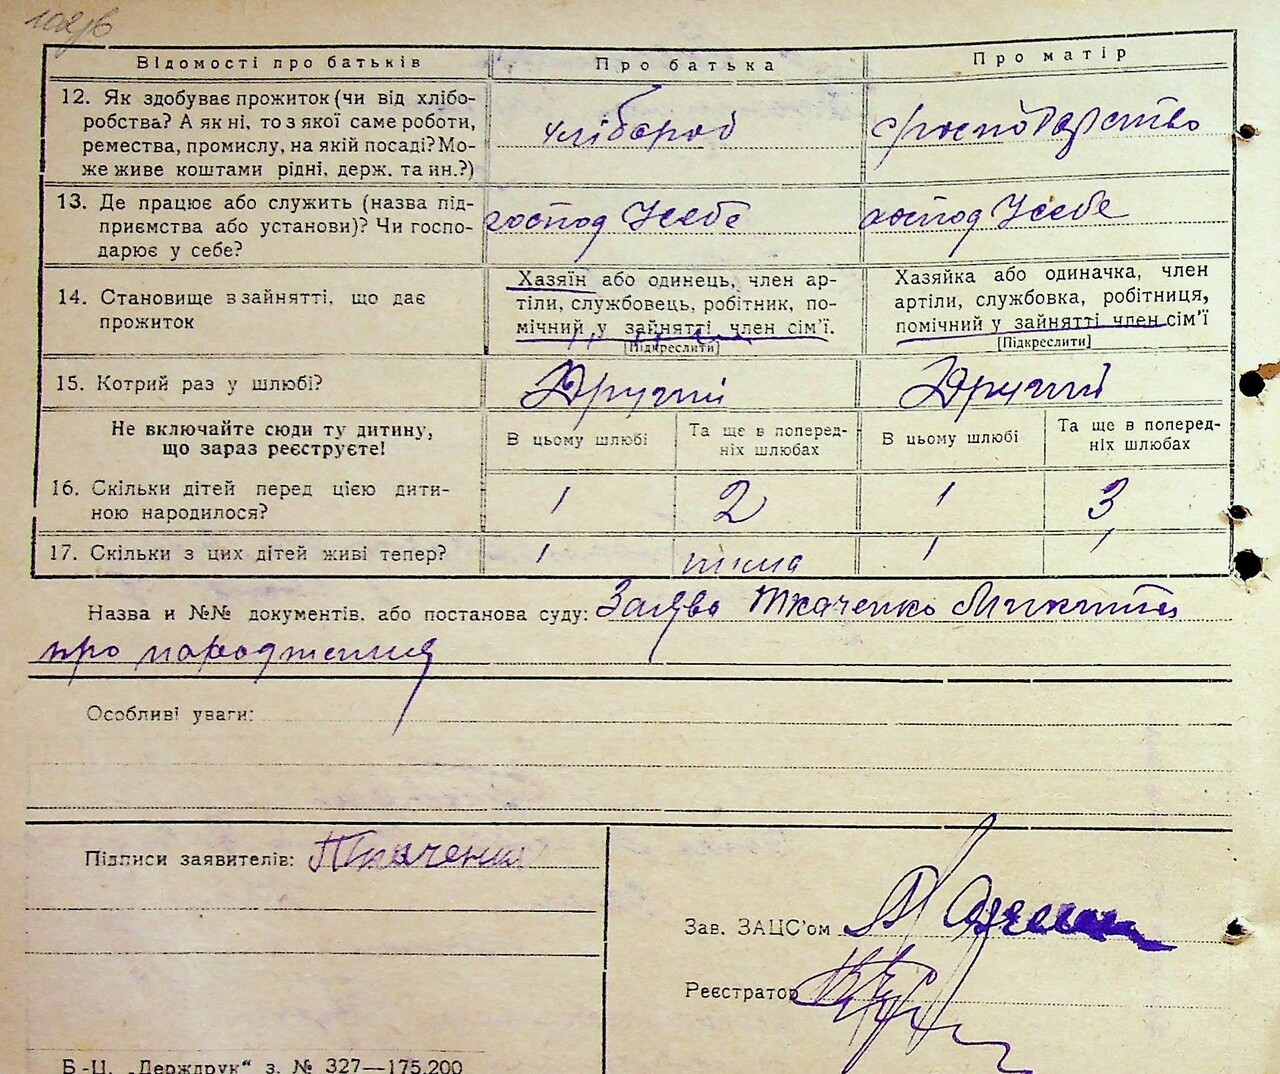 Відомості про батьків Про батька Про матір
12. Як здобуває прожиток (чи від хлібо-
робства? А як ні, то з якої саме роботи,
ремества, промислу, на якій посаді? Мо-
же живе коштами рідні, держ. та ин.?)
хлібороб господарство
13. Де працює або служить (назва під-
приємства або установи)? Чи госпо-
дарює у себе?
господ У себе господ У себе
14. Становище в зайнятті, що дає
прожиток
Хазяїн або одинець, член ар-
тіли, службовець, робітник, по-
мічний у зайнятті член сім'ї.
[Підкреслити]
Хазяйка або одиначка, член
артіли, службовка, робітниця,
помічний у зайнятті член сім'ї
[Підкреслити]
15. Котрий раз у шлюбі? Другий Другий
Не включайте сюди ту дитину,
що зараз реєструєте!
В цьому шлюбі Та ще в поперед-
ніх шлюбах В цьому шлюбі Та ще в поперед-
ніх шлюбах
16. Скільки дітей перед цією дити-
ною народилося? 1 2 1 3
17. Скільки з цих дітей живі тепер? 1 нима 1 1
Назва и №№ документів, або постанова суду: Заява Ткаченко Микити
про народження
Особливі уваги:
Підписи заявителів: Ткаченко
Зав. ЗАЦС'ом
Реєстратор
Б-Ц. „Держдрук“ з. № 327—175.200